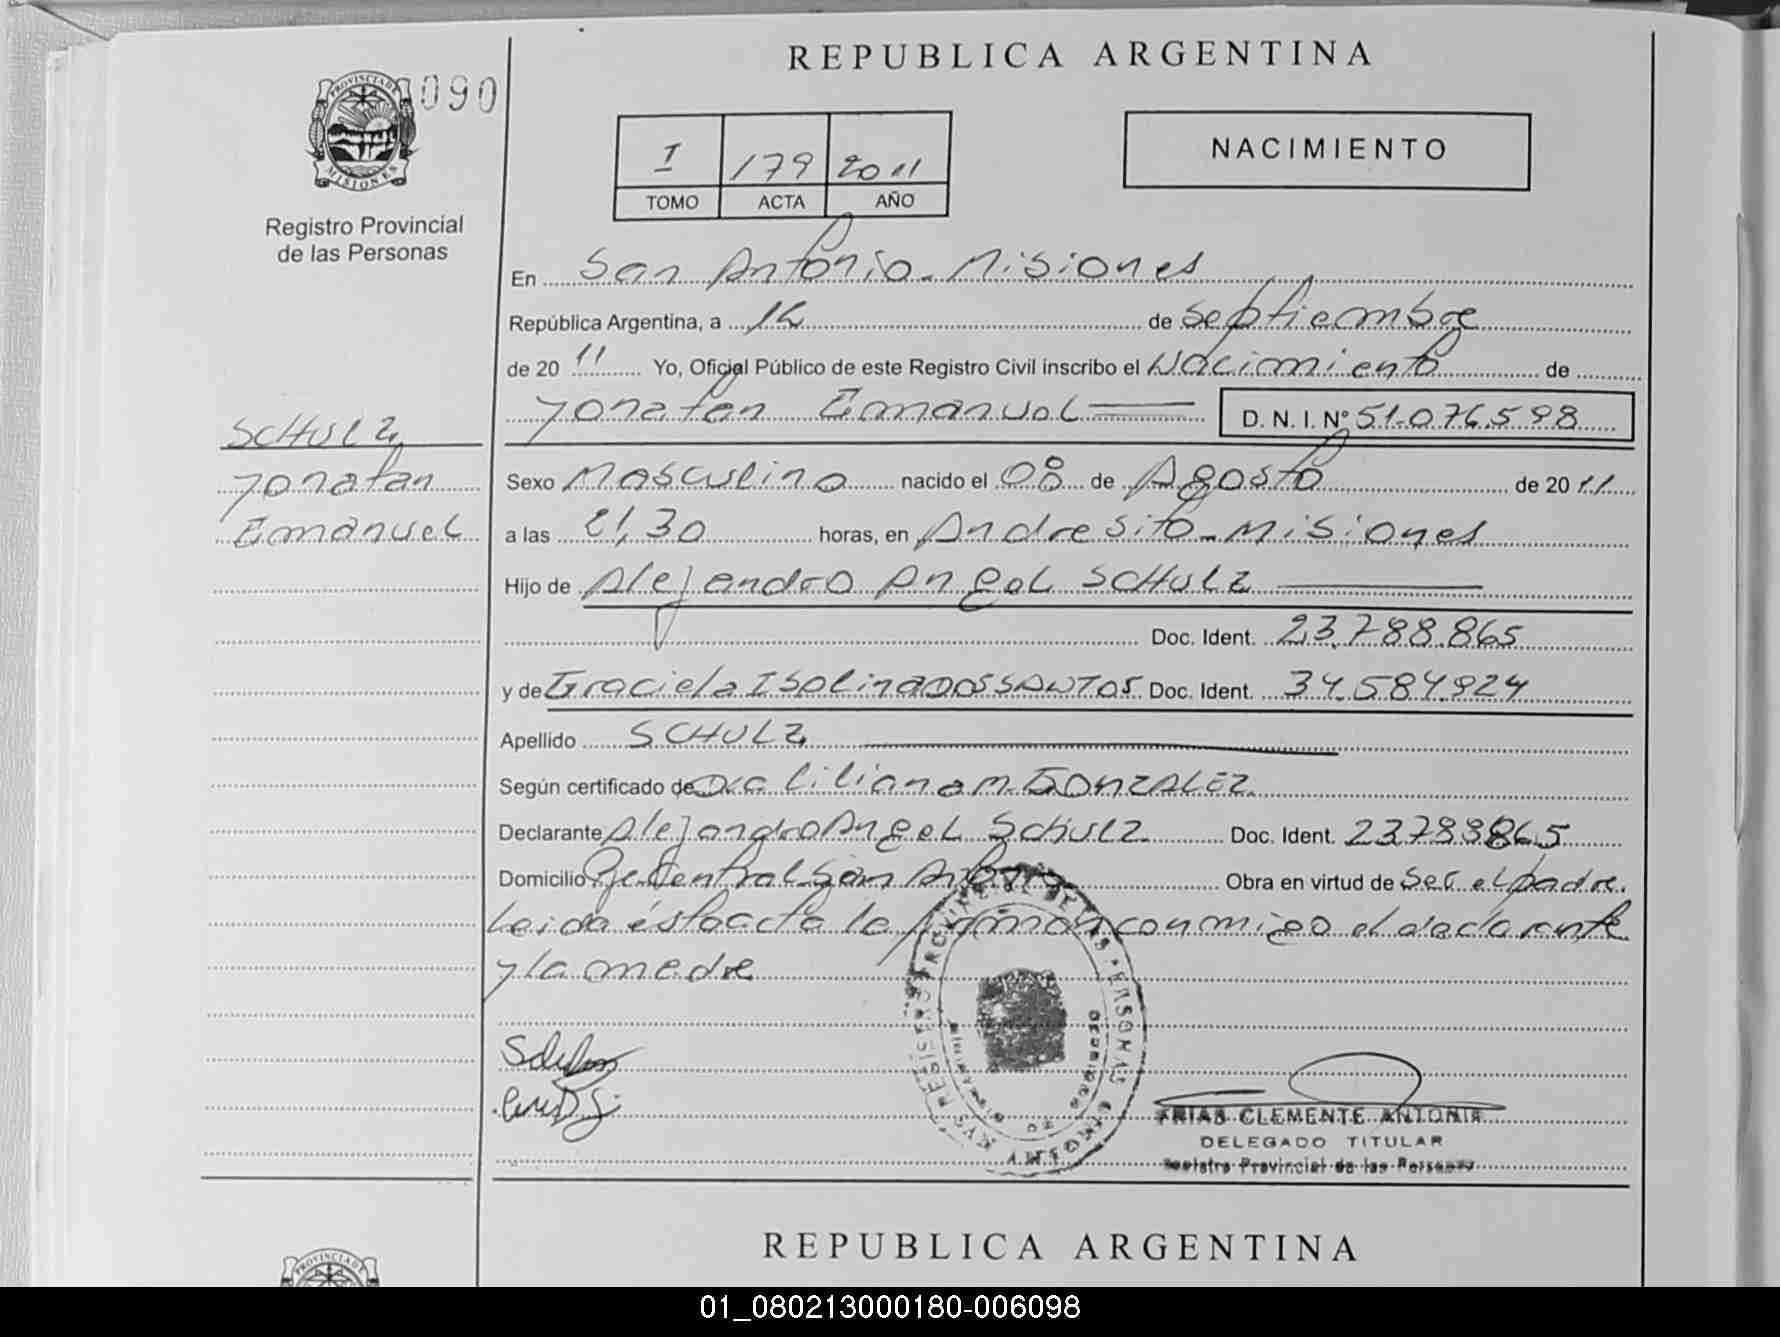 REPUBLICA ARGENTINA
PROVINCIA DE
MISIONES
090
I 179 2011
TOMO ACTA AÑO
NACIMIENTO
Registro Provincial
de las Personas
En San Antonio - Misiones
República Argentina, a 12 de Septiembre
de 20 11 Yo, Oficial Público de este Registro Civil inscribo el Nacimiento de
Yonatan Emanuel D. N. I. Nº 51.076.598
SCHULZ
Yonatan
Emanuel
Sexo Masculino nacido el 08 de Agosto de 20 11
a las 21,30 horas, en Andresito - Misiones
Hijo de Alejandro Angel SCHULZ
Doc. Ident. 23.788.865
y de Graciela Isolina DOS SANTOS Doc. Ident. 34.584.924
Apellido SCHULZ
Según certificado de Dra Liliana M. GONZALEZ
Declarante Alejandro Angel Schulz Doc. Ident. 23788865
Domicilio Central San Antonio Obra en virtud de Ser el padre.
Leida ésta acta la firman conmigo el declarante
y la madre
ARIAS CLEMENTE ANTONIA
DELEGADO TITULAR
Registro Provincial de las Personas
REPUBLICA ARGENTINA
PROVINCIA DE
01_080213000180-006098